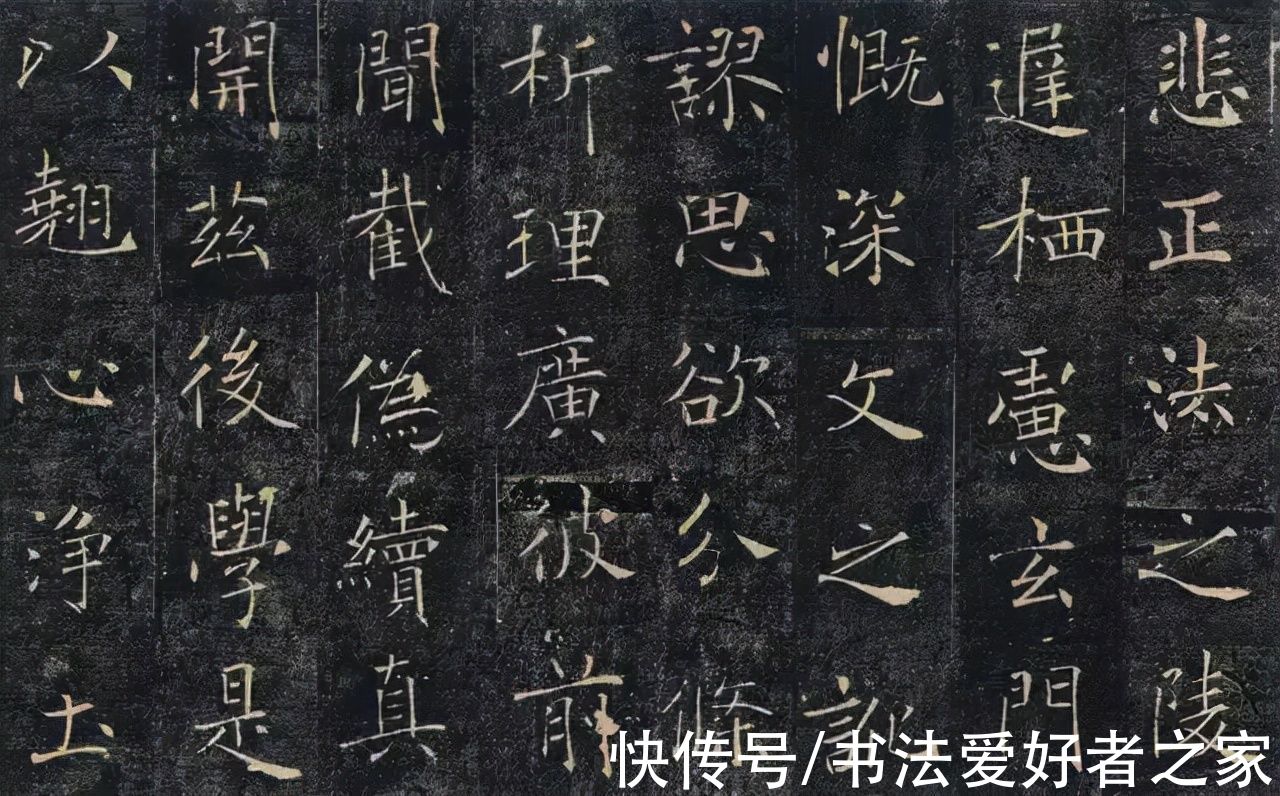 悲正法之陵
遲栖慮玄門
慨深文之訛
謬思欲分條
析理廣彼前
聞截偽續真
開茲後學是
以翹心淨土
快传号/书法爱好者之家